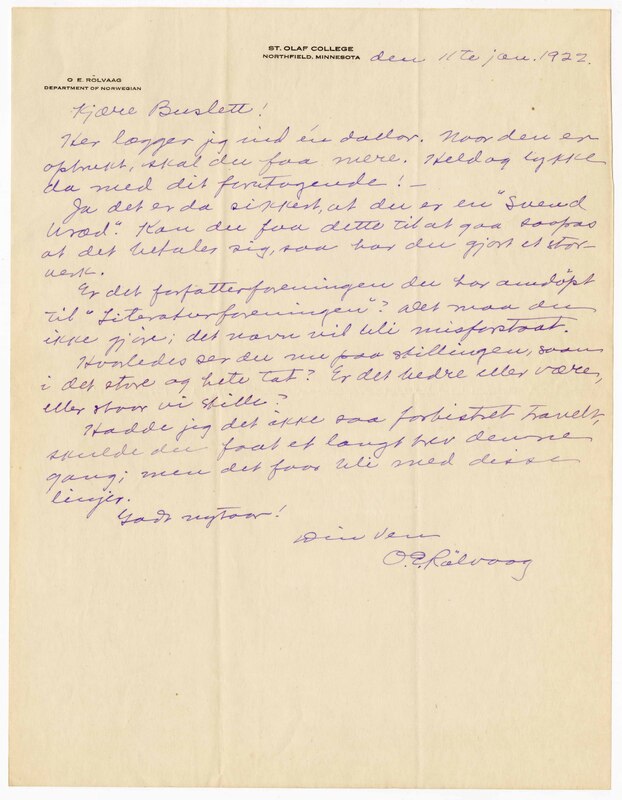 ST. OLAF COLLEGE
NORTHFIELD, MINNESOTA
den 11te jan. 1922.
O E. RÖLVAAG
DEPARTMENT OF NORWEGIAN
Kjære Buslett!
Her lægger jeg ind én dollar. Naar den er
opbrukt, skal du faa mere. Held og lykke
da med dit foretagende! —
Ja det er da sikkert, at du er en "Svend
Uræd". Kan du faa dette til at gaa saapas
at det betaler sig, saa har du gjort et stor-
verk.
Er det forfatterforeningen du har omdöpt
til "Literaturforeningen"? Det maa du
ikke gjöre; det navn vil bli misforstaat.
Hvorledes ser du nu paa stillingen, saan
i det store og hele tat? Er det bedre eller være,
eller staar vi stille?
Hadde jeg det ikke saa forbistret travelt,
skulde du faat et langt brev denne
gang; men det faar bli med disse
linjer.
Godt nytaar!
Din ven
O. E. Rölvaag